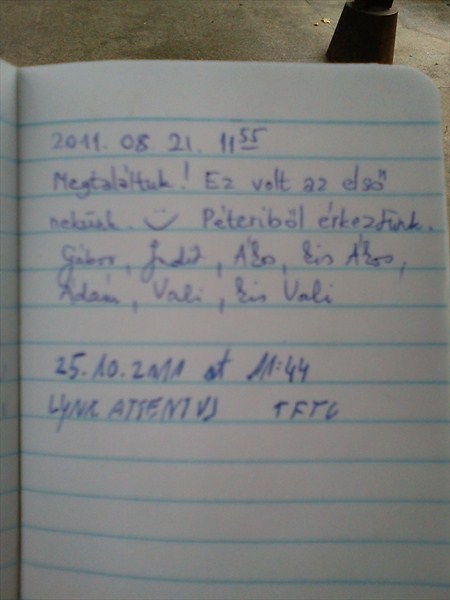 2011. 08 21. 11 55
Megtaláltuk! Ez volt az első
nekünk. Péteriből érkeztünk.
Gábor, Judit, Ákos, Kis Ákos,
Ádám, Vali, Kis Vali
25.10.2011 at 11:44
LYNX ATTENTUS TFTC